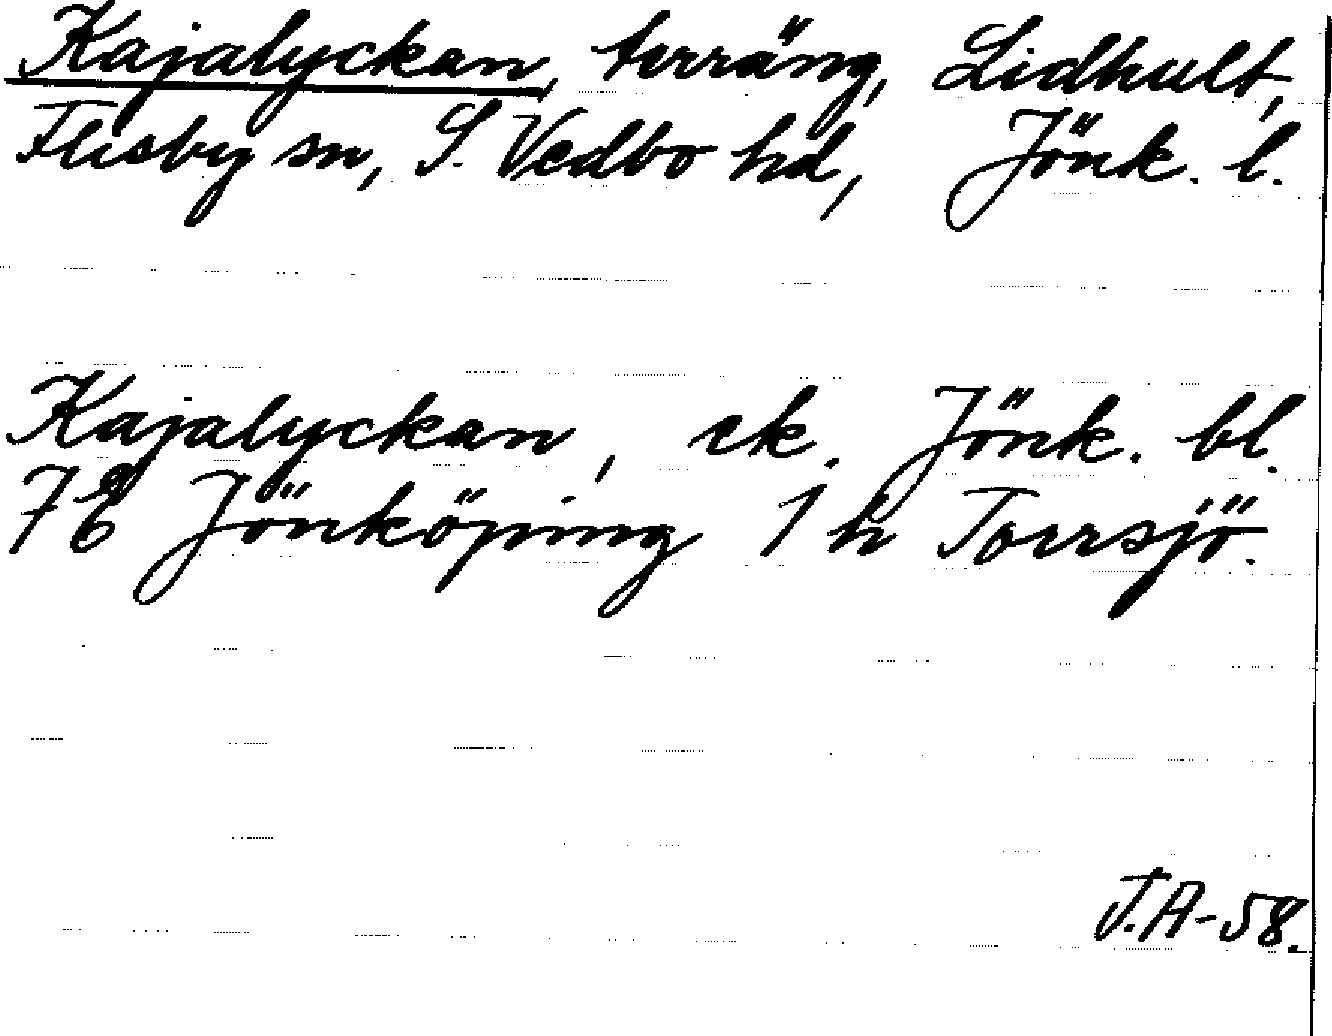 Kajalyckan, terräng, Lidhult,
Flisby sn, S. Vedbo hd, Jönk. l.
Kajalyckan, ek. Jönk. bl.
7 E Jönköping 1 h Torrsjö.
J.A-58.